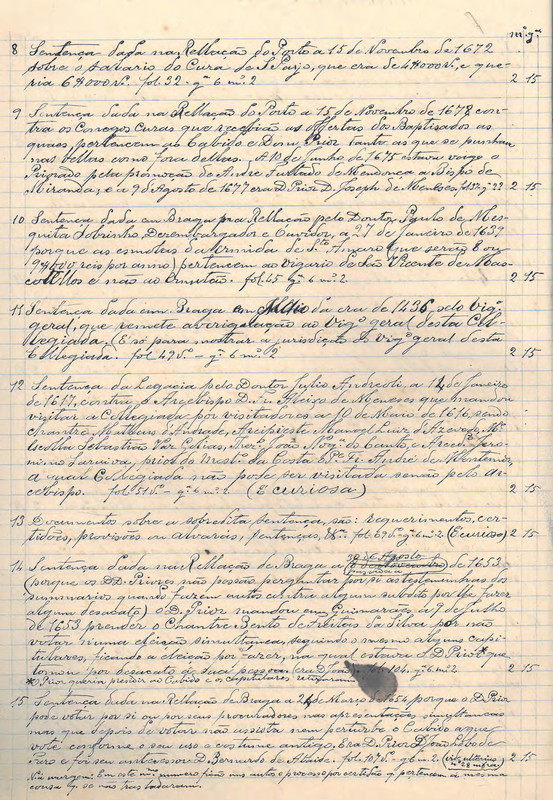 mº gª
8 Sentença dada na Rellação do Porto a 15 de Novembro de 1672
sobre o salario do Cura de S. Payo, que era de 4$000 rs, e que-
ria 6$000 rs. fol. 32 - gª 6 mº 2 2 15
9 Sentença dada na Rellação do Porto a 15 de Novembro de 1672 con-
tra os Conegos Curas que recebião as offertas dos Baptisados as
quaes pertencem ao Cabido e Dom Prior tanto as que se punham
nas vellas como fora dellas. A 10 de Junho de 1675 estava vago o
Priorado pela promoção de André Furtado de Mendonça a Bispo de
Miranda, e a 9 de Agosto de 1677 era D. Prior D. Joseph de Menezes. 2 15
10 Sentença dada em Braga na Rellação pelo Doutor Paulo de Mes-
quita Sobrinho, Dezembargador e Ouvidor, a 27 de Janeiro de 1637
porque as esmolas da Ermida de Stº Amaro (que serião 8 ou
9$000 reis por anno) pertencem ao Vigario de São Vicente de Mas-
cotellos e não ao Ermitão. fol. 45 gª 6 mº 2. 2 15
11 Sentença dada em Braga em Julho da era de 1436 pelo Vigº
geral, que remete a averiguação ao Vigº geral desta Col-
legiada. (E só para mostrar a jurisdição do Vigº geral desta
Collegiada. fol. 49 vº - gª 6 mº 2 2 15
12 Sentença da Legacia pelo Doutor Julio Andreoli, a 14 de Janeiro
de 1617, contra o Arcebispo D. Fr. Aleixo de Meneses que mandou
visitar a Collegiada por visitadores a 10 de Maio de 1616, sendo
Chantre Matheus d'Andrade, Arcipreste Manoel Luiz d'Azevedo, Mº
Escolla Sebastião Vaz Golias, Thezº João do Canto, e Arcedº Jero-
nimo Saraiva, prior do Mostº da Costa André de
a qual Collegiada não pode ser visitada senão pelo Ar-
cebispo. fol. 51 vº - gª 6 mº 2. (E curiosa) 2 15
13 Documentos sobre a sobredita sentença, são: requerimentos, cer-
tidões, provisões ou alvarás, sentenças, &ª. fol. 69 vº gª 6 mº 2 (E curioso) 2 15
30 de Agosto
14 Sentença dada na Rellação de Braga a de 1653
(porque os DD. Priores não possão perguntar por si as testemunhas dos
summarios quando fazem autos contra algum subdito por lhe fazer
algum desacato) o D. Prior mandou em Guimarães, a 9 de Julho
de 1653 prender o Chantre Bento de Freitas da Silva por não
votar n'uma eleição simultanea, seguindo o mesmo alguns capi-
tulares, ficando a eleição por fazer, na qual estava o D. Prior* que
tomou por desacato de sua pessoa. (era D. fol. 104. gª 6 mº 2 2 15
* O Prior queria presidir ao Cabido e os capitulares recusaram
15 Sentença dada na Rellação de Braga a 24 de Março de 1654 porque o D. Prior
pode votar por si ou por seus procuradores nas apresentações simultaneas
mas que depois de votar não assista nem perturbe o Cabido a que
vote conforme o seu uso e costume antigo. Era D. Prior D.
e foi seu antecessor D. Bernardo de Ataide. fol. 107 vº - gª 6 mº 2. 2 15
Na margem: Em este mº numero ficão uns autos e processo por certidão q pertencem á mesma
cousa q se nos